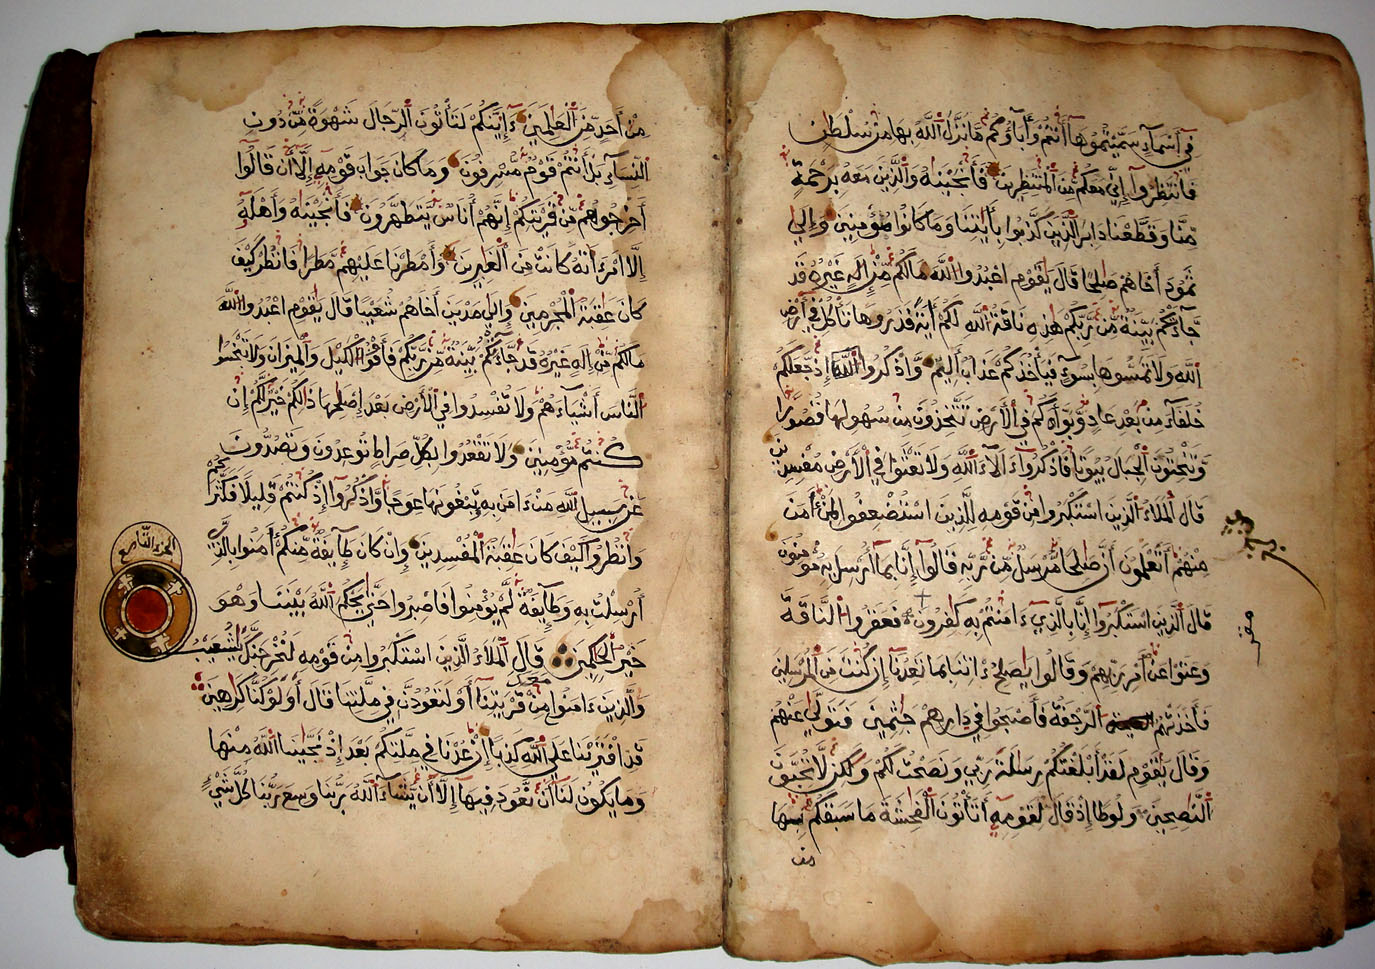 في أسماء سميتموها أنتم وءاباؤكم ما نزل الله بها من سلطن
فانتظروا إني معكم من المنتظرين فأنجينه والذين معه برحمة
منا وقطعنا دابر الذين كذبوا بأيتنا وما كانوا مؤمنين وإلى
ثمود أخاهم صلحا قال يقوم اعبدوا الله مالكم من إله غيره قد
جاءتكم بينة من ربكم هذه ناقة الله لكم ءاية فذروها تأكل في أرض
الله ولا تمسوها بسوء فيأخذكم عذاب أليم واذكروا إذ جعلكم
خلفاء من بعد عاد وبوأكم في الأرض تتخذون من سهولها قصورا
وتنحتون الجبال بيوتا فاذكروا ءالاء الله ولا تعثوا في الأرض مفسدين
قال الملأ الذين استكبروا من قومه للذين استضعفوا لمن ءامن
منهم أتعلمون أن صلحا مرسل من ربه قالوا إنا بما أرسل به مؤمنون
قال الذين استكبروا إنا بالذي ءامنتم به كفرون فعقروا الناقة
وعتوا عن أمر ربهم وقالوا يصلح ءاتنا بما تعدنا إن كنت من المرسلين
فأخذتهم الرجفة فأصبحوا في دارهم جثمين فتولى عنهم
وقال يقوم لقد أبلغتكم رسالة ربي ونصحت لكم ولكن لا تحبون
النصحين ولوطا إذ قال لقومه أتأتون الفحشة ما سبقكم بها
من
من أحد من العلمين ءاينكم لتأتون الرجال شهوة من دون
النساء بل أنتم قوم مسرفون وما كان جواب قومه إلا أن قالوا
أخرجوهم من قريتكم إنهم أناس يتطهرون فأنجينه وأهله
إلا امرأته كانت من الغبرين وأمطرنا عليهم مطرا فانظر كيف
كان عقبة المجرمين وإلى مدين أخاهم شعيبا قال يقوم اعبدوا الله
مالكم من إله غيره قد جاءتكم بينة من ربكم فأوفوا الكيل والميزان ولا تبخسوا
الناس أشياءهم ولا تفسدوا في الأرض بعد إصلحها ذالكم خير لكم إن
كنتم مؤمنين ولا تقعدوا بكل صراط توعدون وتصدون
عن سبيل الله من ءامن به وتبغونها عوجا واذكروا إذ كنتم قليلا فكثركم
وانظروا كيف كان عقبة المفسدين وإن كان طايفة منكم ءامنوا بالذي
أرسلت به وطايفة لم يؤمنوا فاصبروا حتى يحكم الله بيننا وهو
خير الحكمين قال الملأ الذين استكبروا من قومه لنخرجنك يشعيب
والذين ءامنوا معك من قريتنا أو لتعودن في ملتنا قال أولو كنا كرهين
قد افترينا على الله كذبا إن عدنا في ملتكم بعد إذ نجينا الله منها
وما يكون لنا أن نعود فيها إلا أن يشاء الله ربنا وسع ربنا كل شيء
الجزء التاسع